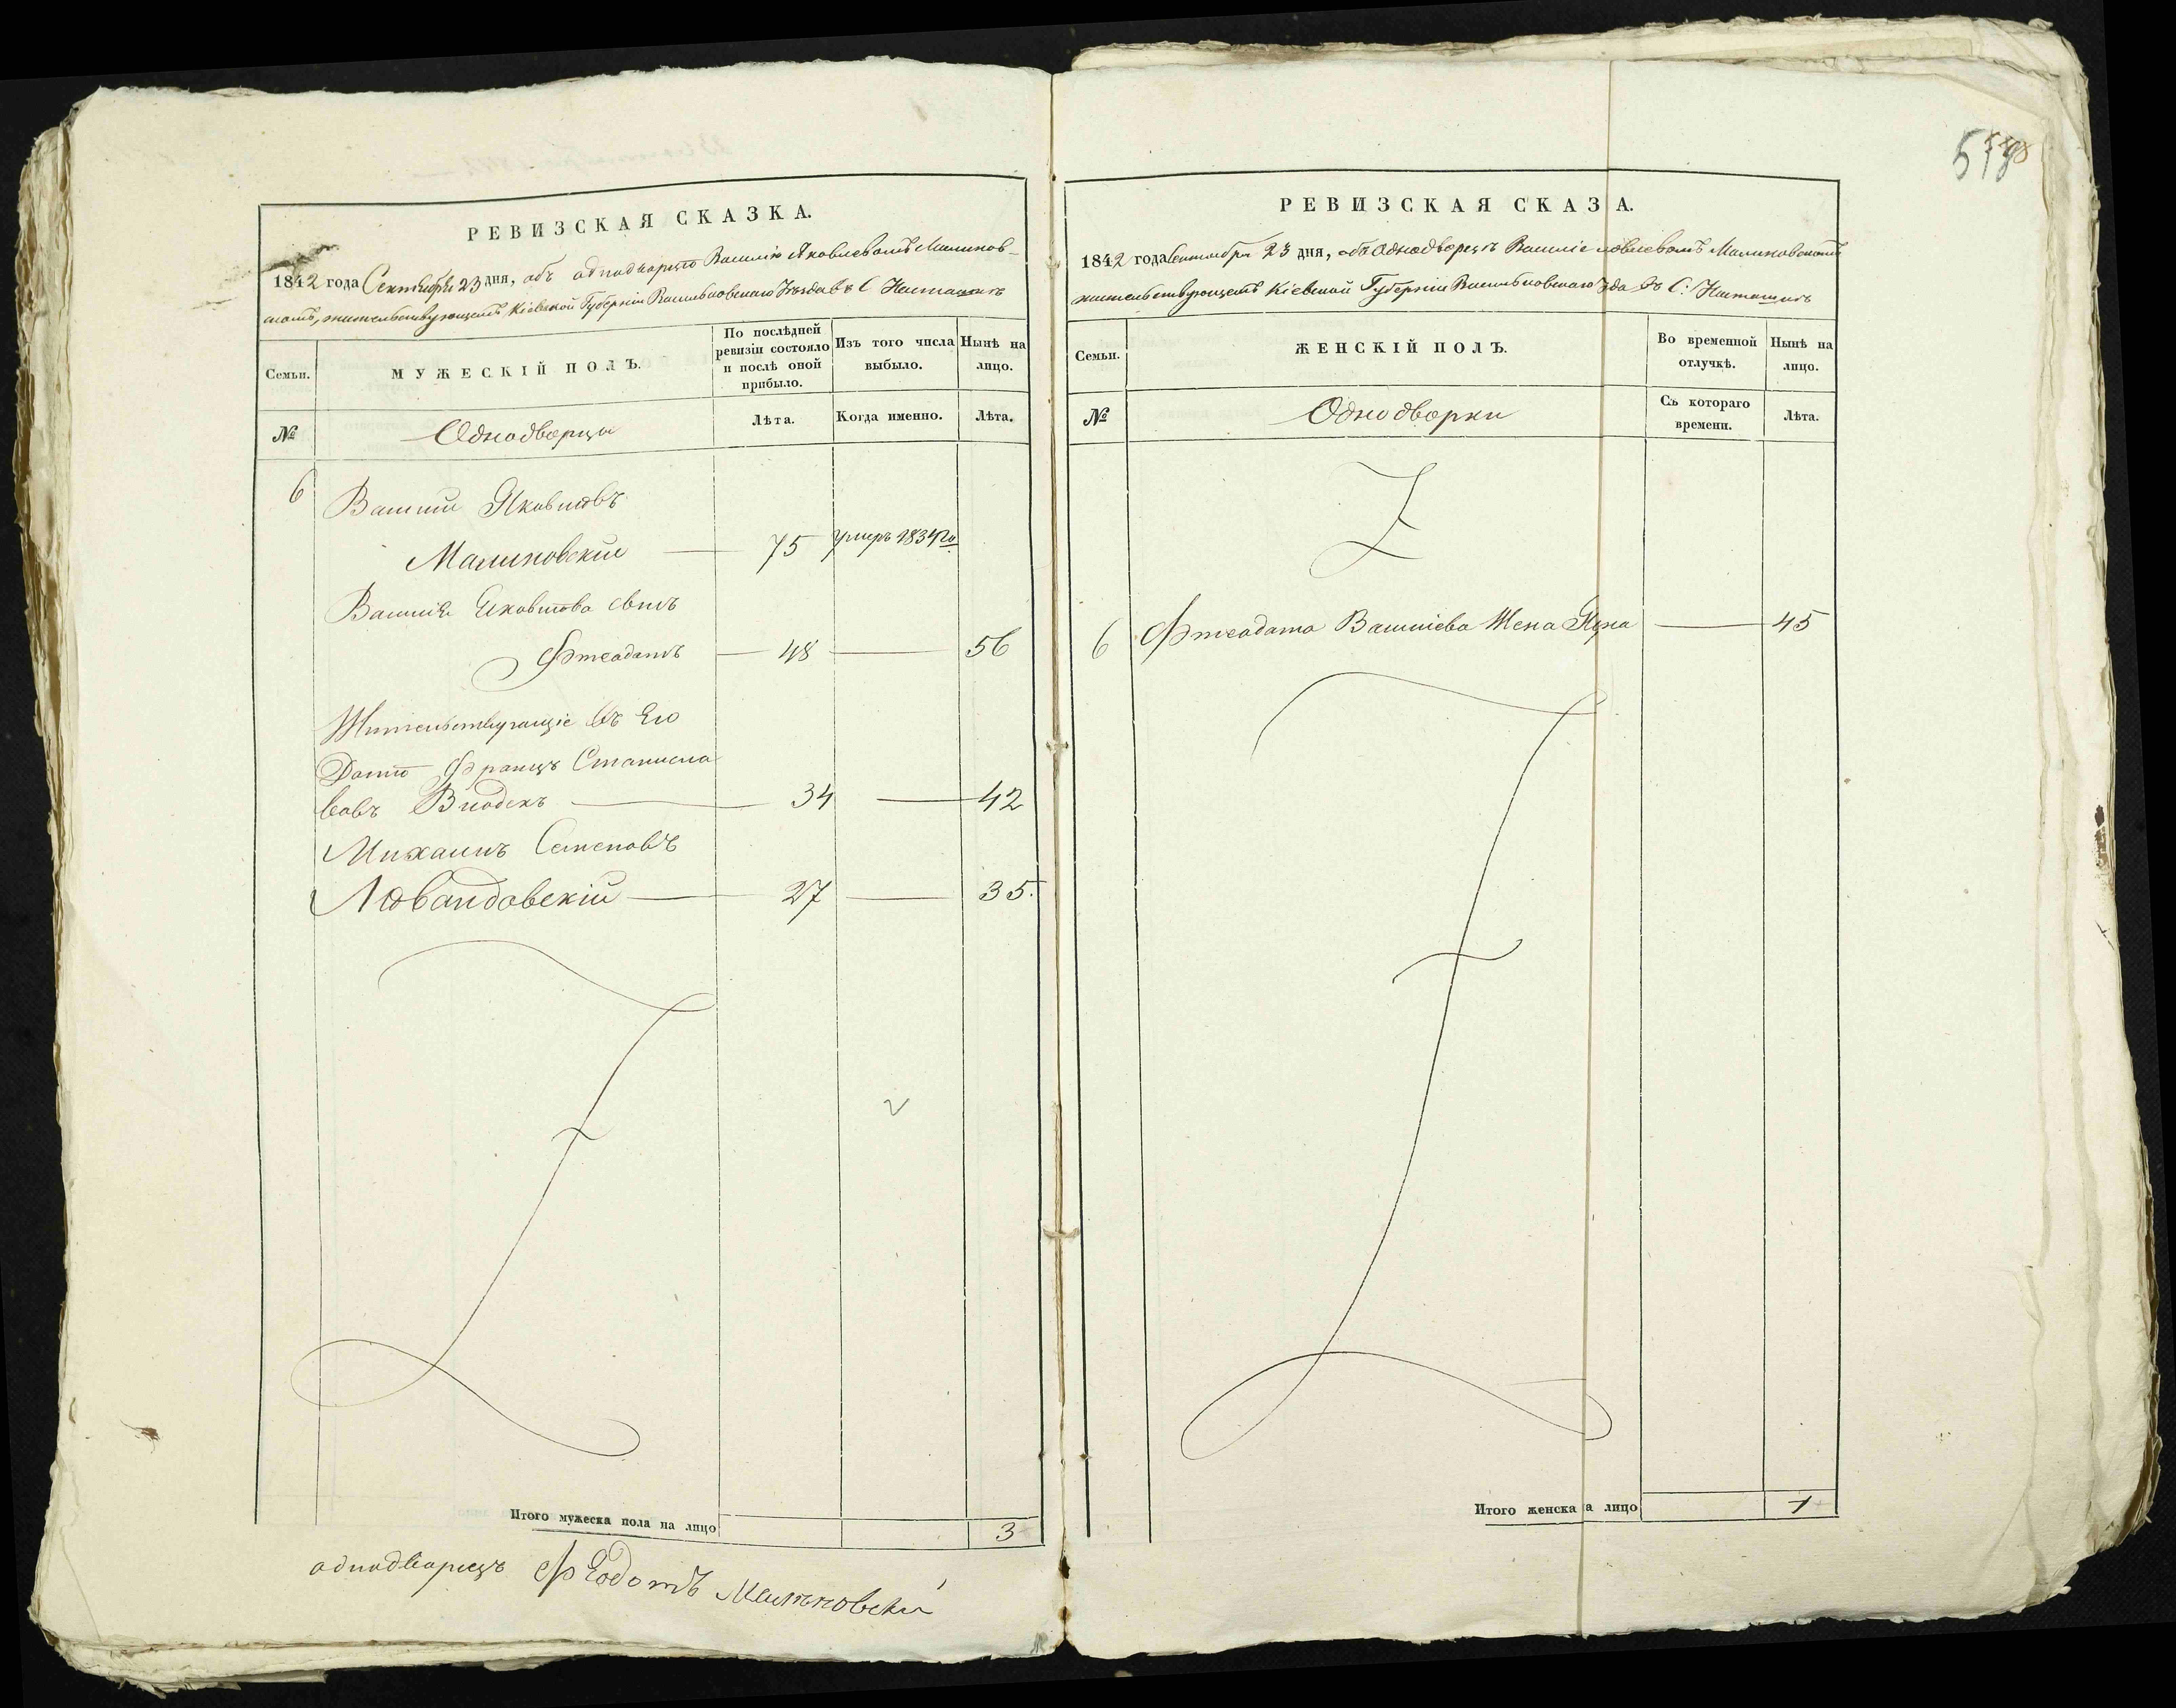 518
РЕВИЗСКАЯ СКАЗКА.
1842 года Сентября 23 дня, объ однодворцѣ Василію Яковлевомъ Малинов-
скомъ, жительствующемъ Кіевской Губерніи Васильковскаго Уѣзда въ С Насташкѣ
Семьи.
МУЖЕСКІЙ ПОЛЪ.
По послѣдней ревизіи состояло и послѣ оной прибыло.
Изъ того числа выбыло.
Нынѣ на лицо.
№
Однодворцы
Лѣта.
Когда именно.
Лѣта.
6 Василий Яковлевъ
Малиновскій 75 умеръ 1834 го
Василія Яковлева сынъ
Феодатъ 48 56
Жительствующіе въ Его
Домѣ Францъ Станисла
вовъ Влодекъ 34 42
Михаилъ Семеновъ
Левандовскій 27 35.
Итого мужеска пола на лицо 3
однодворецъ ФЕодотъ Малиновски
РЕВИЗСКАЯ СКАЗ А.
1842 года Сентября 23 дня, объ Однодворцѣ Василіе овлевомъ Малиновскомъ
жительствующемъ Кіевской Губерніи Васильковскаго Уда въ С: Насташкѣ
Семьи.
ЖЕНСКІЙ ПОЛЪ.
Во временной отлучкѣ.
Нынѣ на лицо.
№
Однодворки
Съ котораго времени.
Лѣта.
6 Феодата Василіева Жена 45
Итого женска а лицо 1